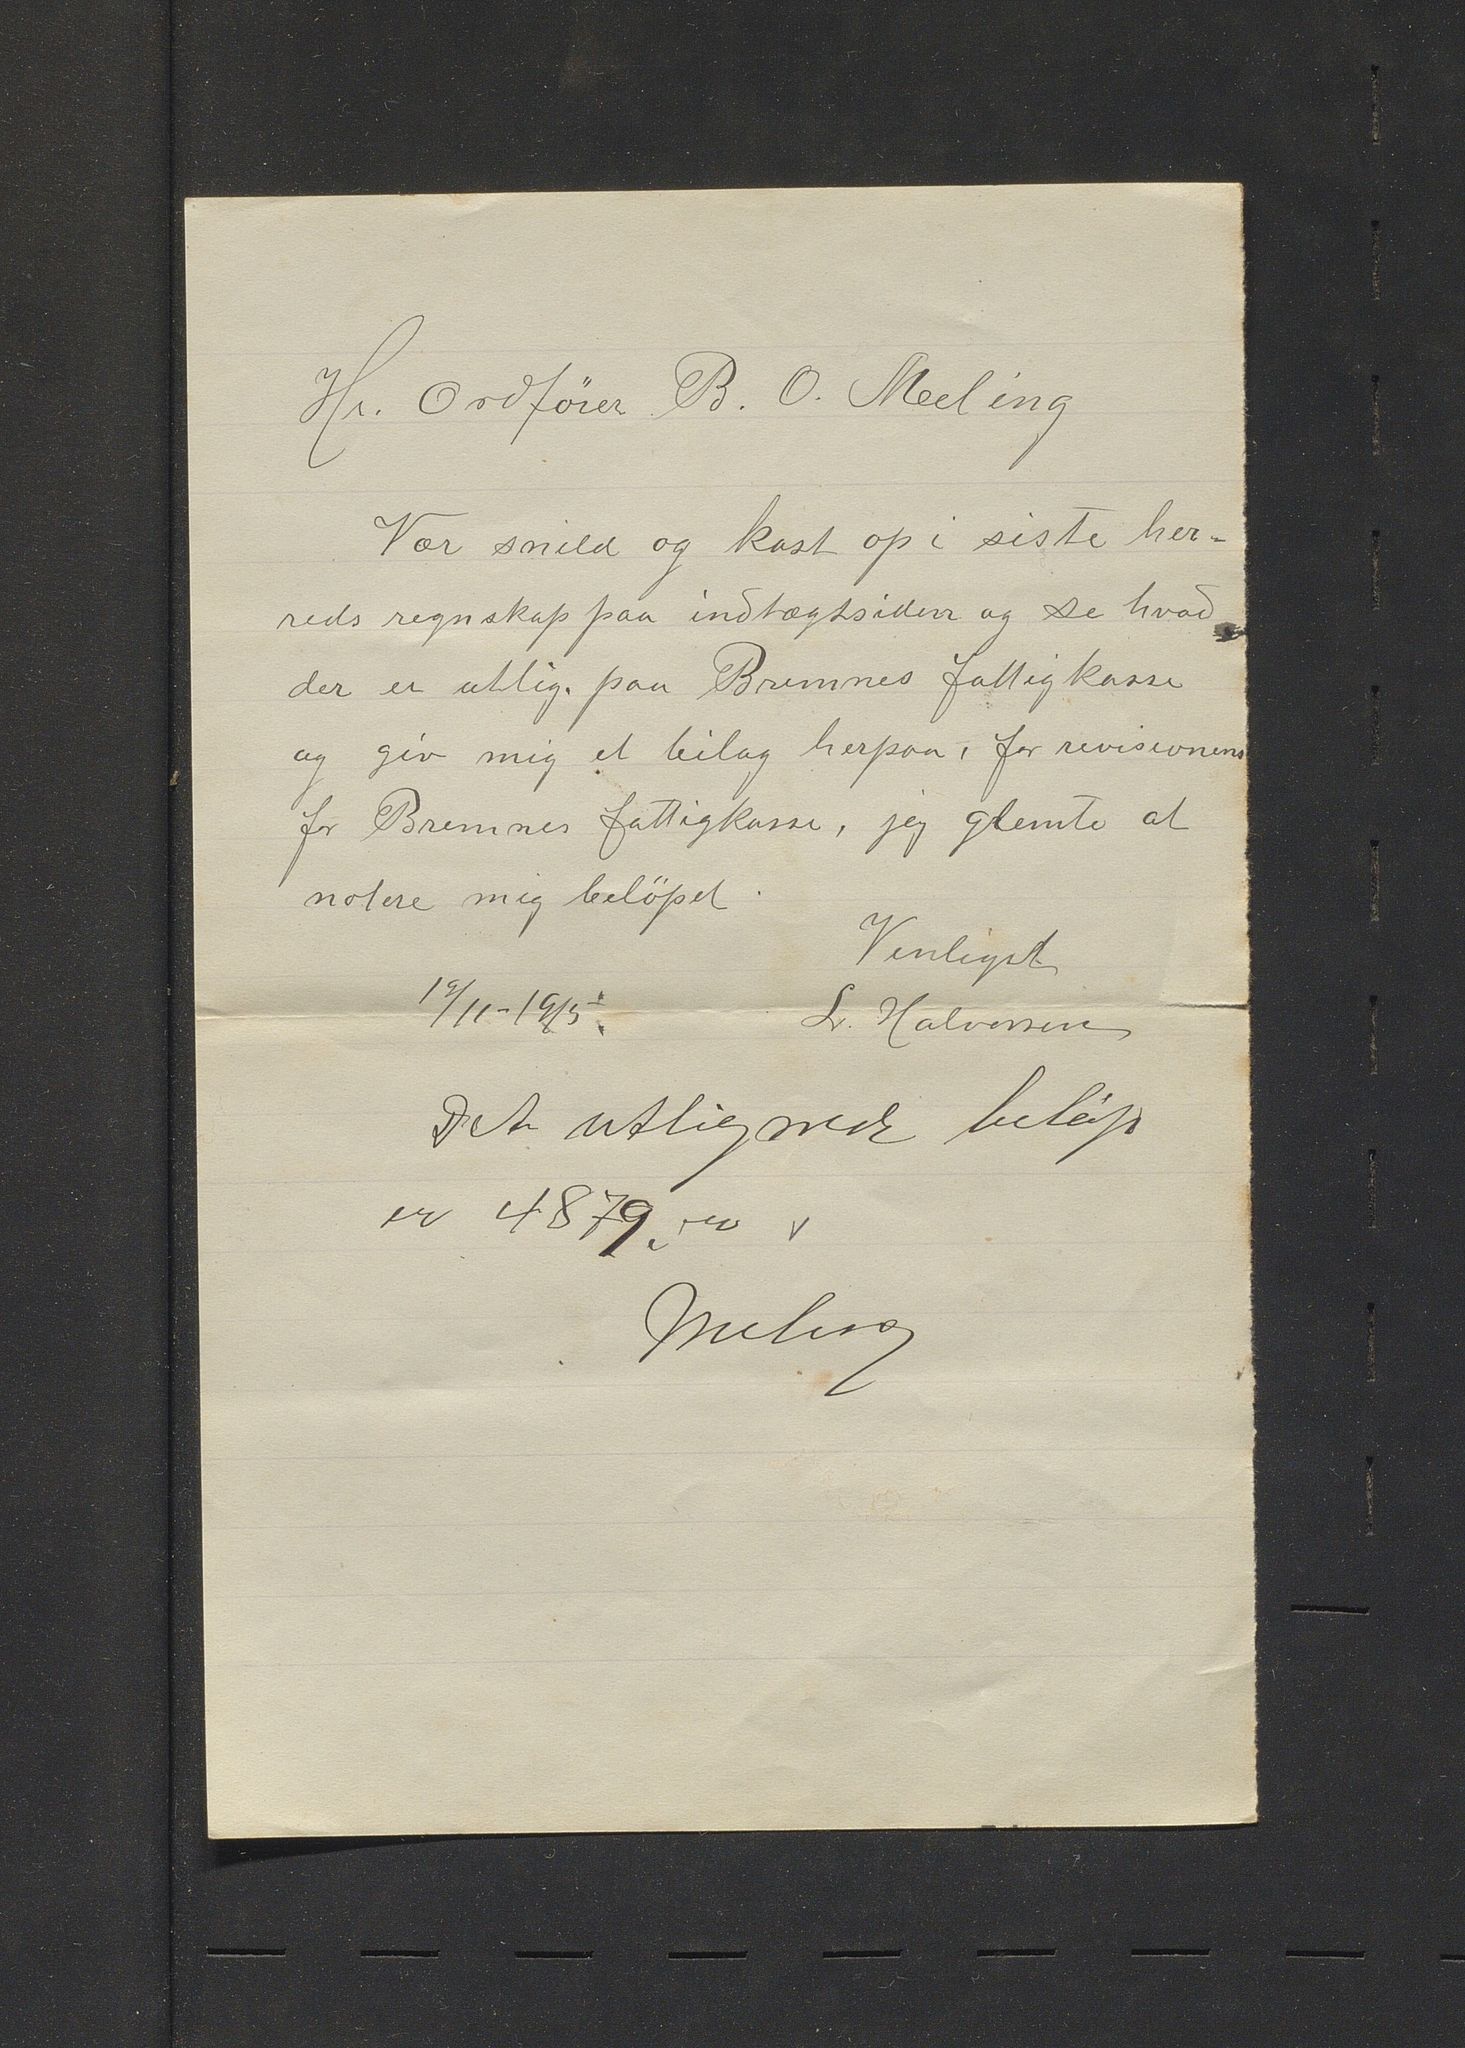 Hr. Ordförer B. O. Meeling
Vær snild og kast op i siste her-
reds regnskap paa indtægtsiden og se hvad
der er utlig. paa Bremnes fattigkasse
og giv mig et bilag herpaa, for revisionens
for Bremnes fattigkasse, jeg glemte at
notere mig belöpet.
Venligst
19/11-1915. L. Halvorsen
Det utlignede beløp
er 4879,00
Meling